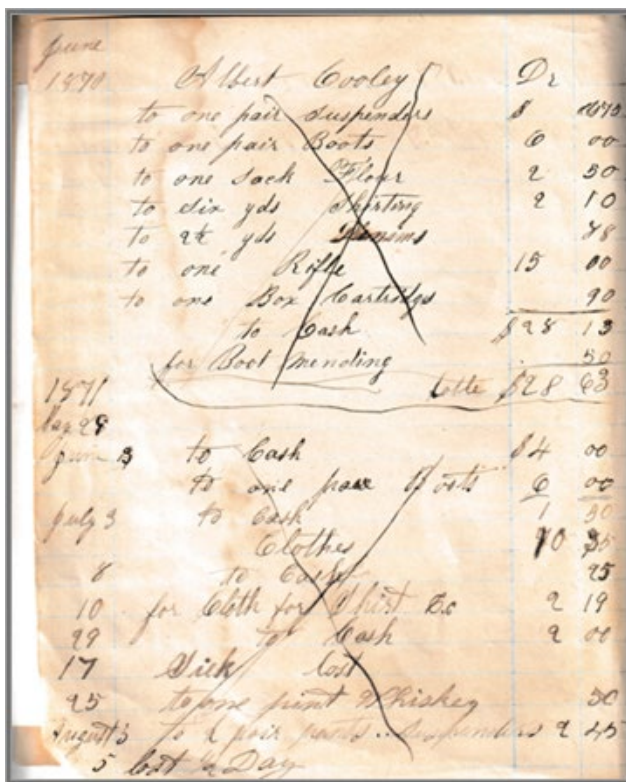 June
1870 Albert Cooley Dr
to one pair suspenders $ 75
to one pair Boots 6 00
to one sack Flour 2 50
to six yds Shirting 2 10
to 2½ yds 48
to one Rifle 15 00
to one Box Cartridgs 90
to Cash $28 13
for Boot mending 50
1871 totle $28 63
May 29
June 3 to Cash $4 00
to one pair Boots 6 00
July 3 to Cash 1 50
Clothes 10 35
8 to Cash 25
10 for Cloth for Shirt &c 2 19
29 to Cash 2 00
17 Sick lost
25 to one pint Whiskey 50
August 3 to 1 pair pants .. suspenders 2 45
5 lost ½ Day